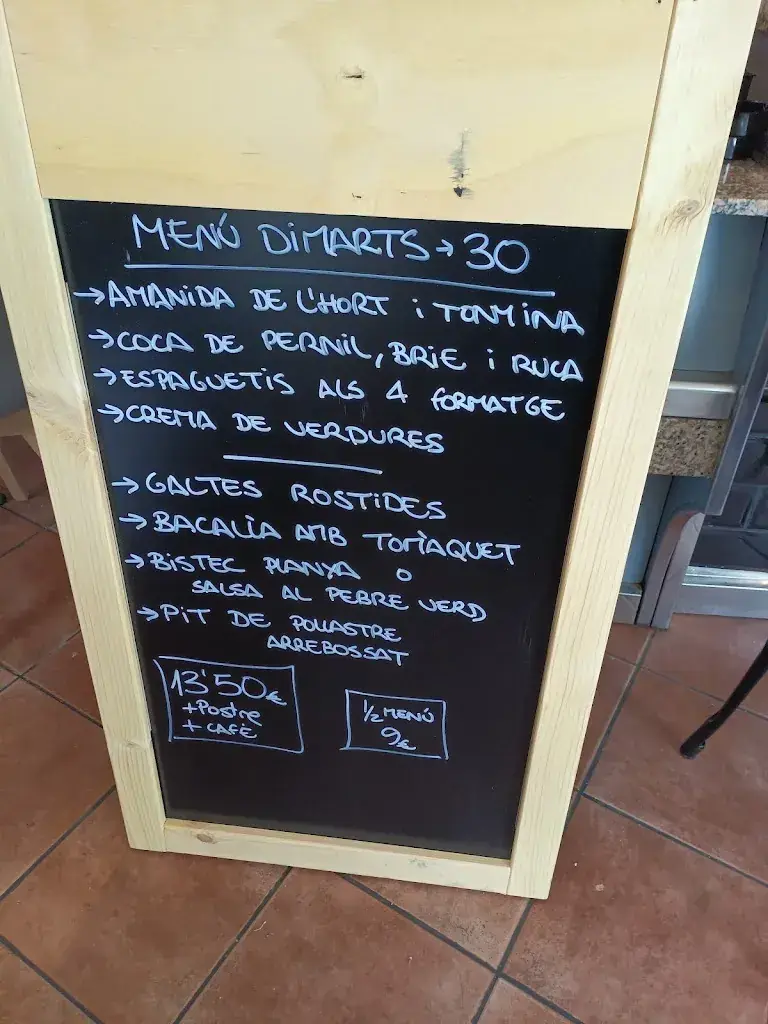 MENÚ DIMARTS → 30
→ AMANIDA DE L'HORT i TONYINA
→ COCA DE PERNIL, BRIE i RUCA
→ ESPAGUETIS ALS 4 FORMATGE
→ CREMA DE VERDURES
→ GALTES ROSTIDES
→ BACALLÀ AMB TOMÀQUET
→ BISTEC PLANXA O
SALSA AL PEBRE VERD
→ PIT DE POLLASTRE
ARREBOSSAT
13'50€
+ Postre
+ CAFÈ
1/2 MENÚ
9€